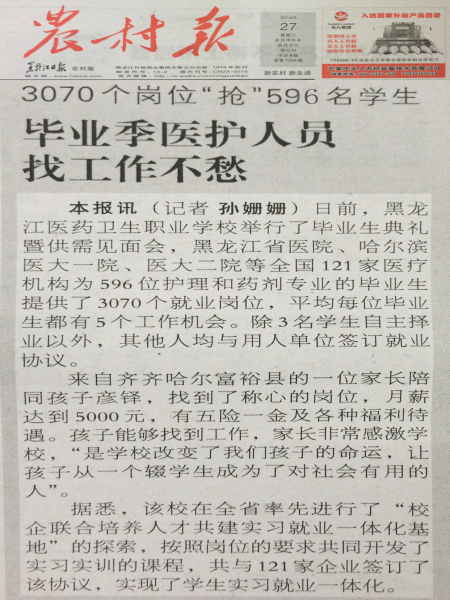 农村报
27
黑龙江日报 农村版
新农村 新生活
入选国家补贴产品目录
3070个岗位“抢”596名学生
毕业季医护人员
找工作不愁
本报讯（记者 孙姗姗）日前，黑龙
江医药卫生职业学校举行了毕业生典礼
暨供需见面会，黑龙江省医院、哈尔滨
医大一院、医大二院等全国121家医疗
机构为596位护理和药剂专业的毕业生
提供了3070个就业岗位，平均每位毕业
生都有5个工作机会。除3名学生自主择
业以外，其他人均与用人单位签订就业
协议。
来自齐齐哈尔富裕县的一位家长陪
同孩子彦铎，找到了称心的岗位，月薪
达到5000元，有五险一金及各种福利待
遇。孩子能够找到工作，家长非常感激学
校，“是学校改变了我们孩子的命运，让
孩子从一个辍学生成为了对社会有用的
人”。
据悉，该校在全省率先进行了“校
企联合培养人才共建实习就业一体化基
地”的探索，按照岗位的要求共同开发了
实习实训的课程，共与121家企业签订了
该协议，实现了学生实习就业一体化。